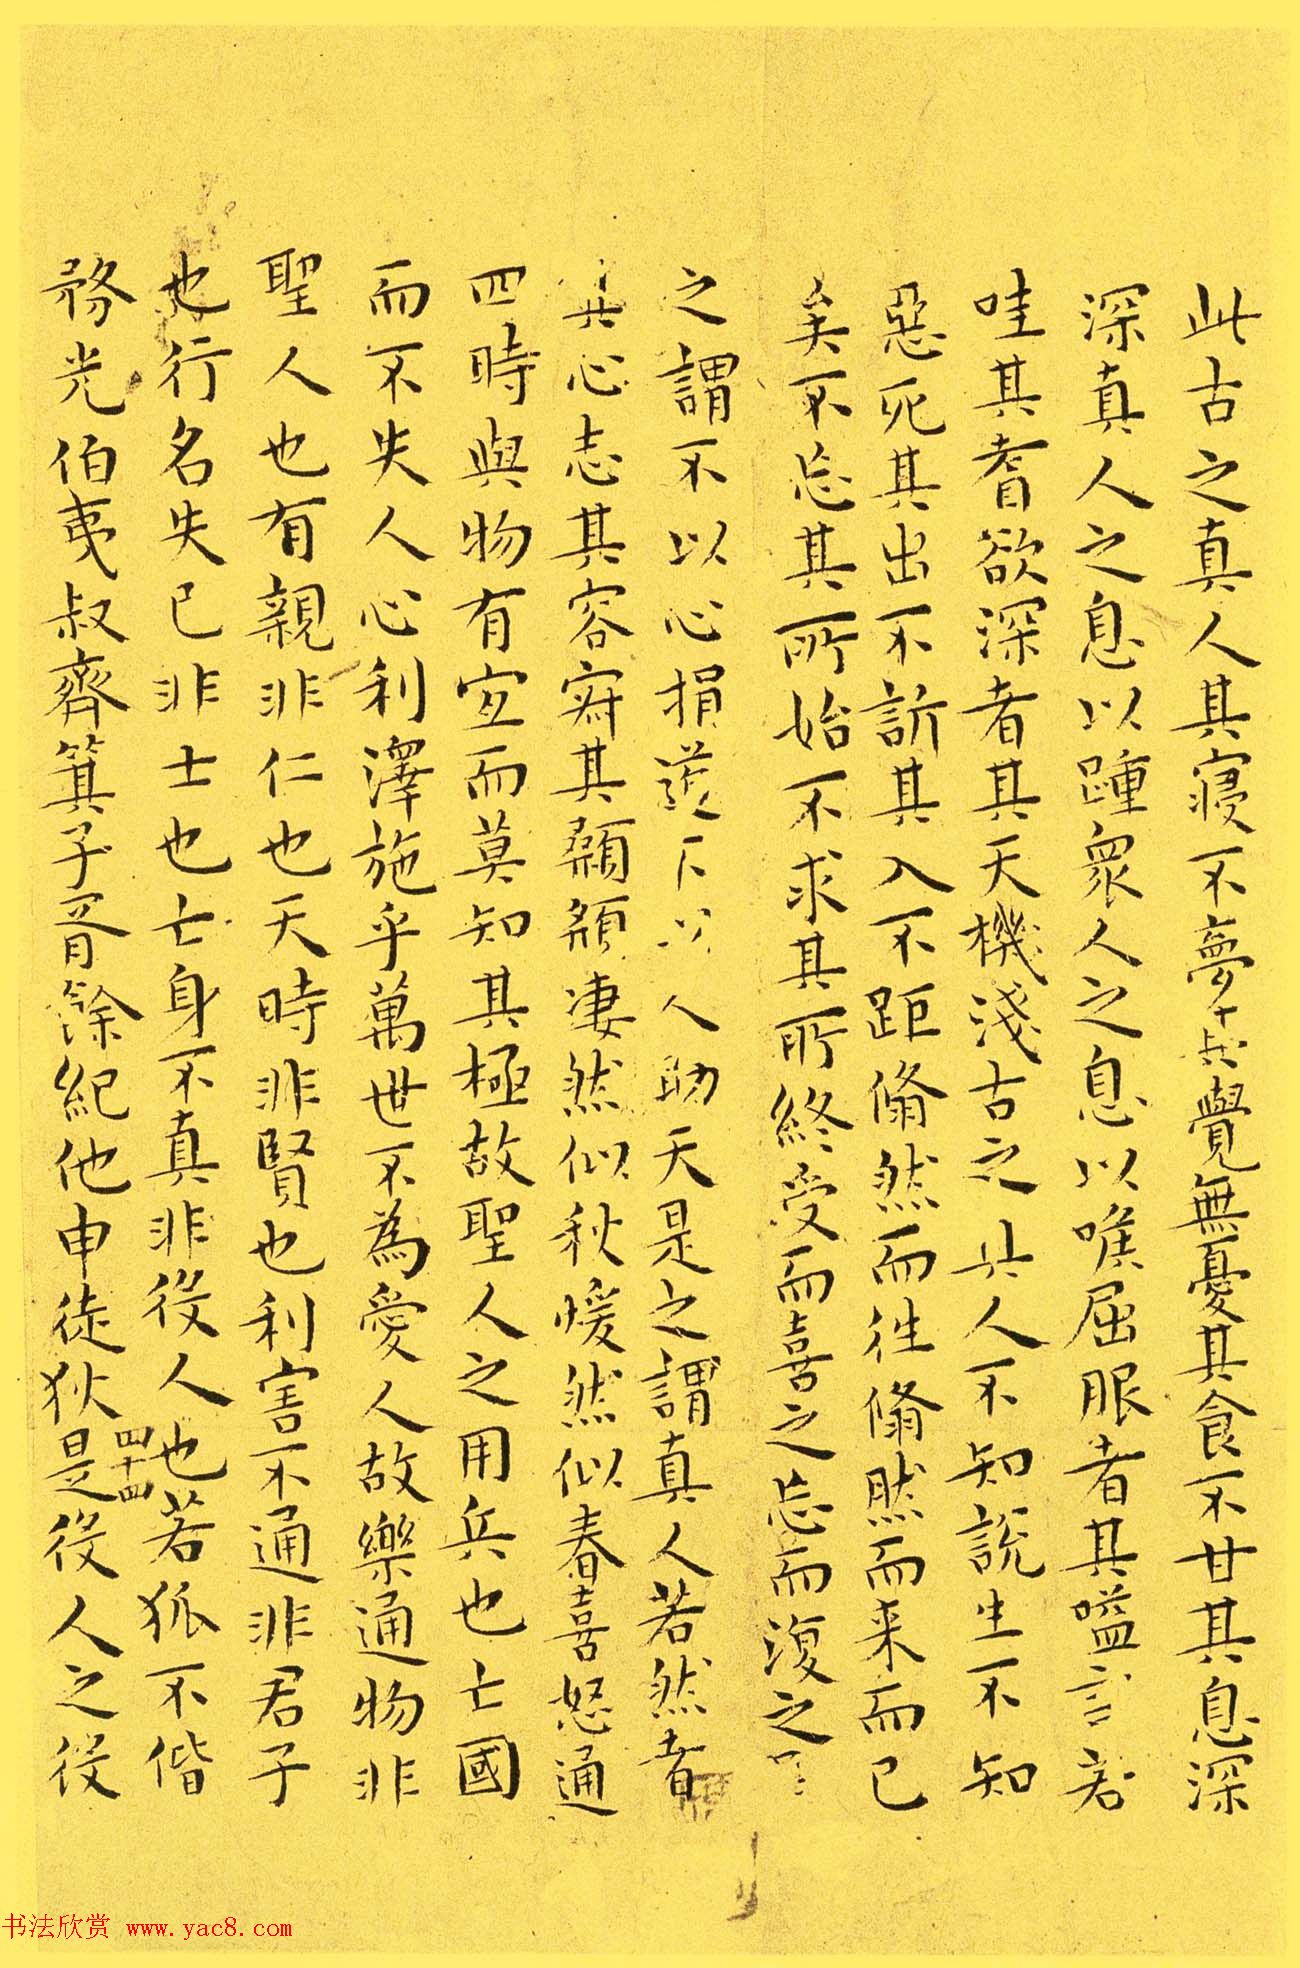 此古之真人其寢不夢其覺無憂其食不甘其息深
深真人之息以踵衆人之息以喉屈服者其嗌言若
哇其耆欲深者其天機淺古之真人不知說生不知
惡死其出不訢其入不距翛然而往翛然而来而已
矣不忘其所始不求其所終受而喜之忘而復之是
之謂不以心捐道不以人助天是之謂真人若然者
其心志其容寂其顙頯凄然似秋煖然似春喜怒通
四時與物有宜而莫知其極故聖人之用兵也亡國
而不失人心利澤施乎萬世不為愛人故樂通物非
聖人也有親非仁也天時非賢也利害不通非君子
也行名失已非士也亡身不真非役人也若狐不偕
務光伯夷叔齊箕子胥餘紀他申徒狄是役人之役
四十四
书法欣赏 www.yac8.com